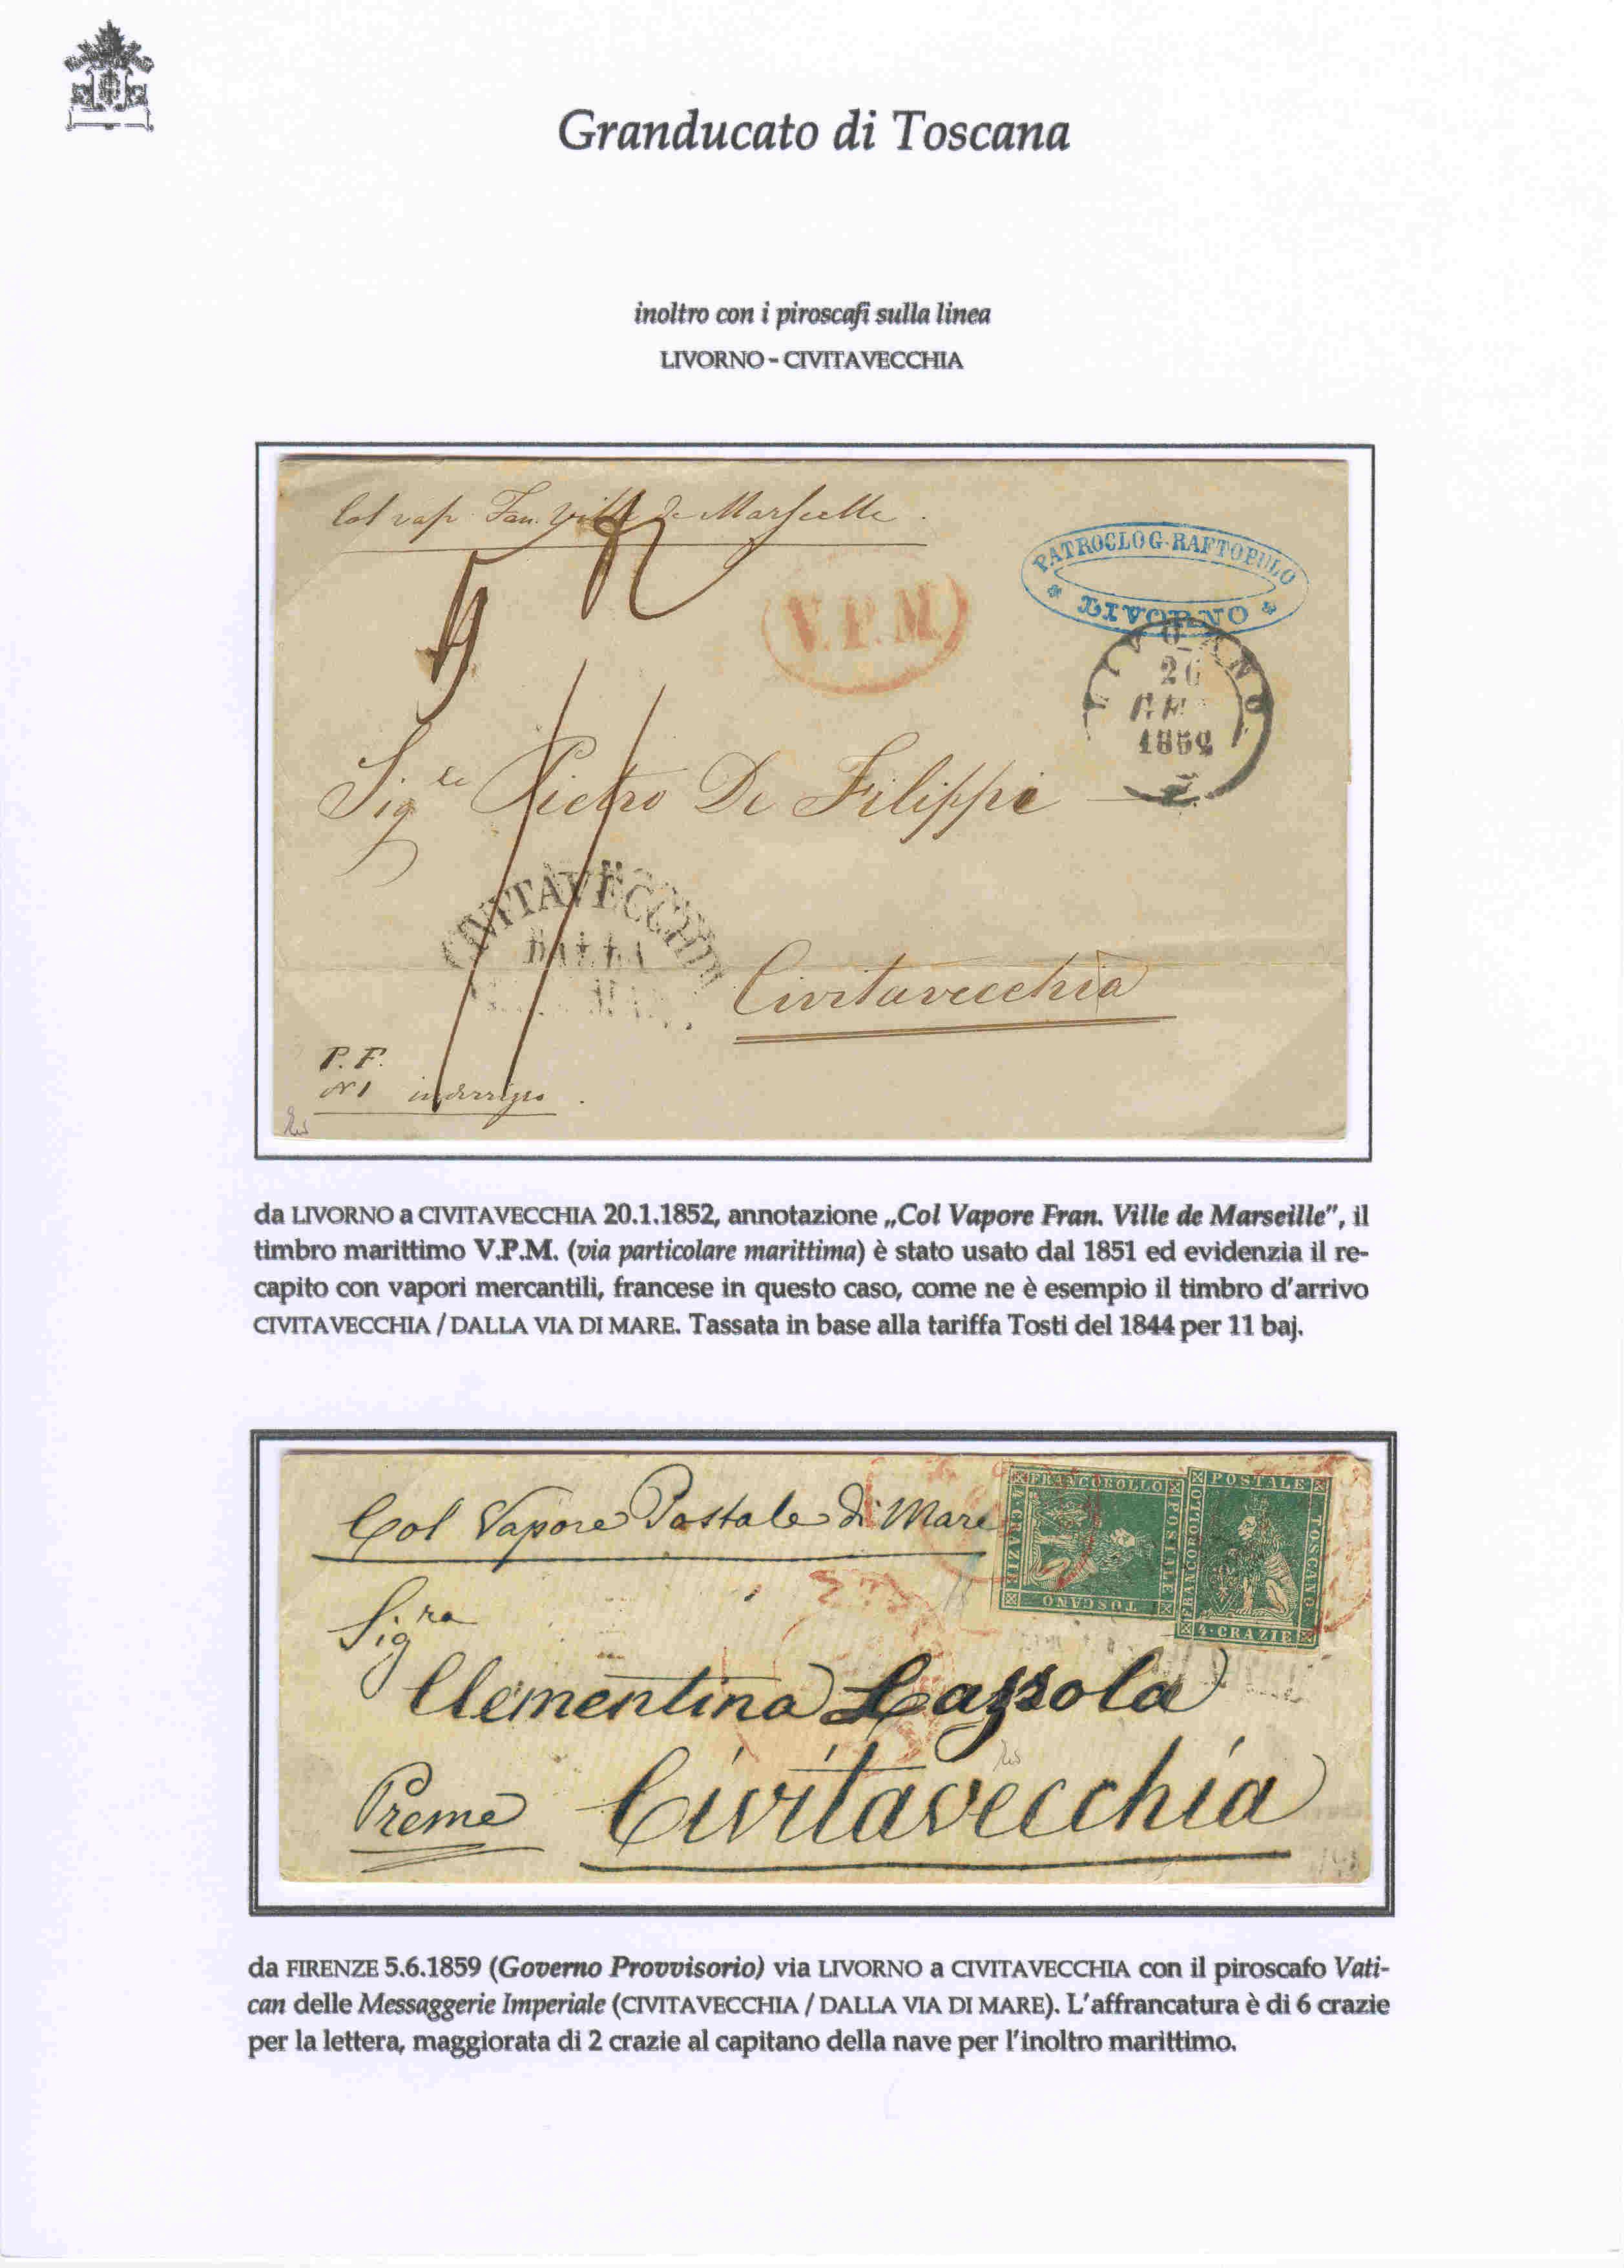 Granducato di Toscana
inoltro con i piroscafi sulla linea
LIVORNO - CIVITAVECCHIA
Col vap. Fran. Ville de Marseille
PATROCLO G. RAFTOPULO
LIVORNO
V.P.M
LIVORNO
20
GEN
1852
Sig.le Pietro De Filippi
CIVITAVECCHIA
DALLA
Civitavecchia
P. F.
N 1
da LIVORNO a CIVITAVECCHIA 20.1.1852, annotazione „Col Vapore Fran. Ville de Marseille", il
timbro marittimo V.P.M. (via particolare marittima) è stato usato dal 1851 ed evidenzia il re-
capito con vapori mercantili, francese in questo caso, come ne è esempio il timbro d'arrivo
CIVITAVECCHIA / DALLA VIA DI MARE. Tassata in base alla tariffa Tosti del 1844 per 11 baj.
Col Vapore Postale di Mare
FRANCOBOLLO
POSTALE
TOSCANO
4·CRAZIE
POSTALE
TOSCANO
FRANCOBOLLO
4·CRAZIE
Sig.ra
Clementina Lazzola
Preme Civitavecchia
da FIRENZE 5.6.1859 (Governo Provvisorio) via LIVORNO a CIVITAVECCHIA con il piroscafo Vati-
can delle Messaggerie Imperiale (CIVITAVECCHIA / DALLA VIA DI MARE). L'affrancatura è di 6 crazie
per la lettera, maggiorata di 2 crazie al capitano della nave per l'inoltro marittimo.